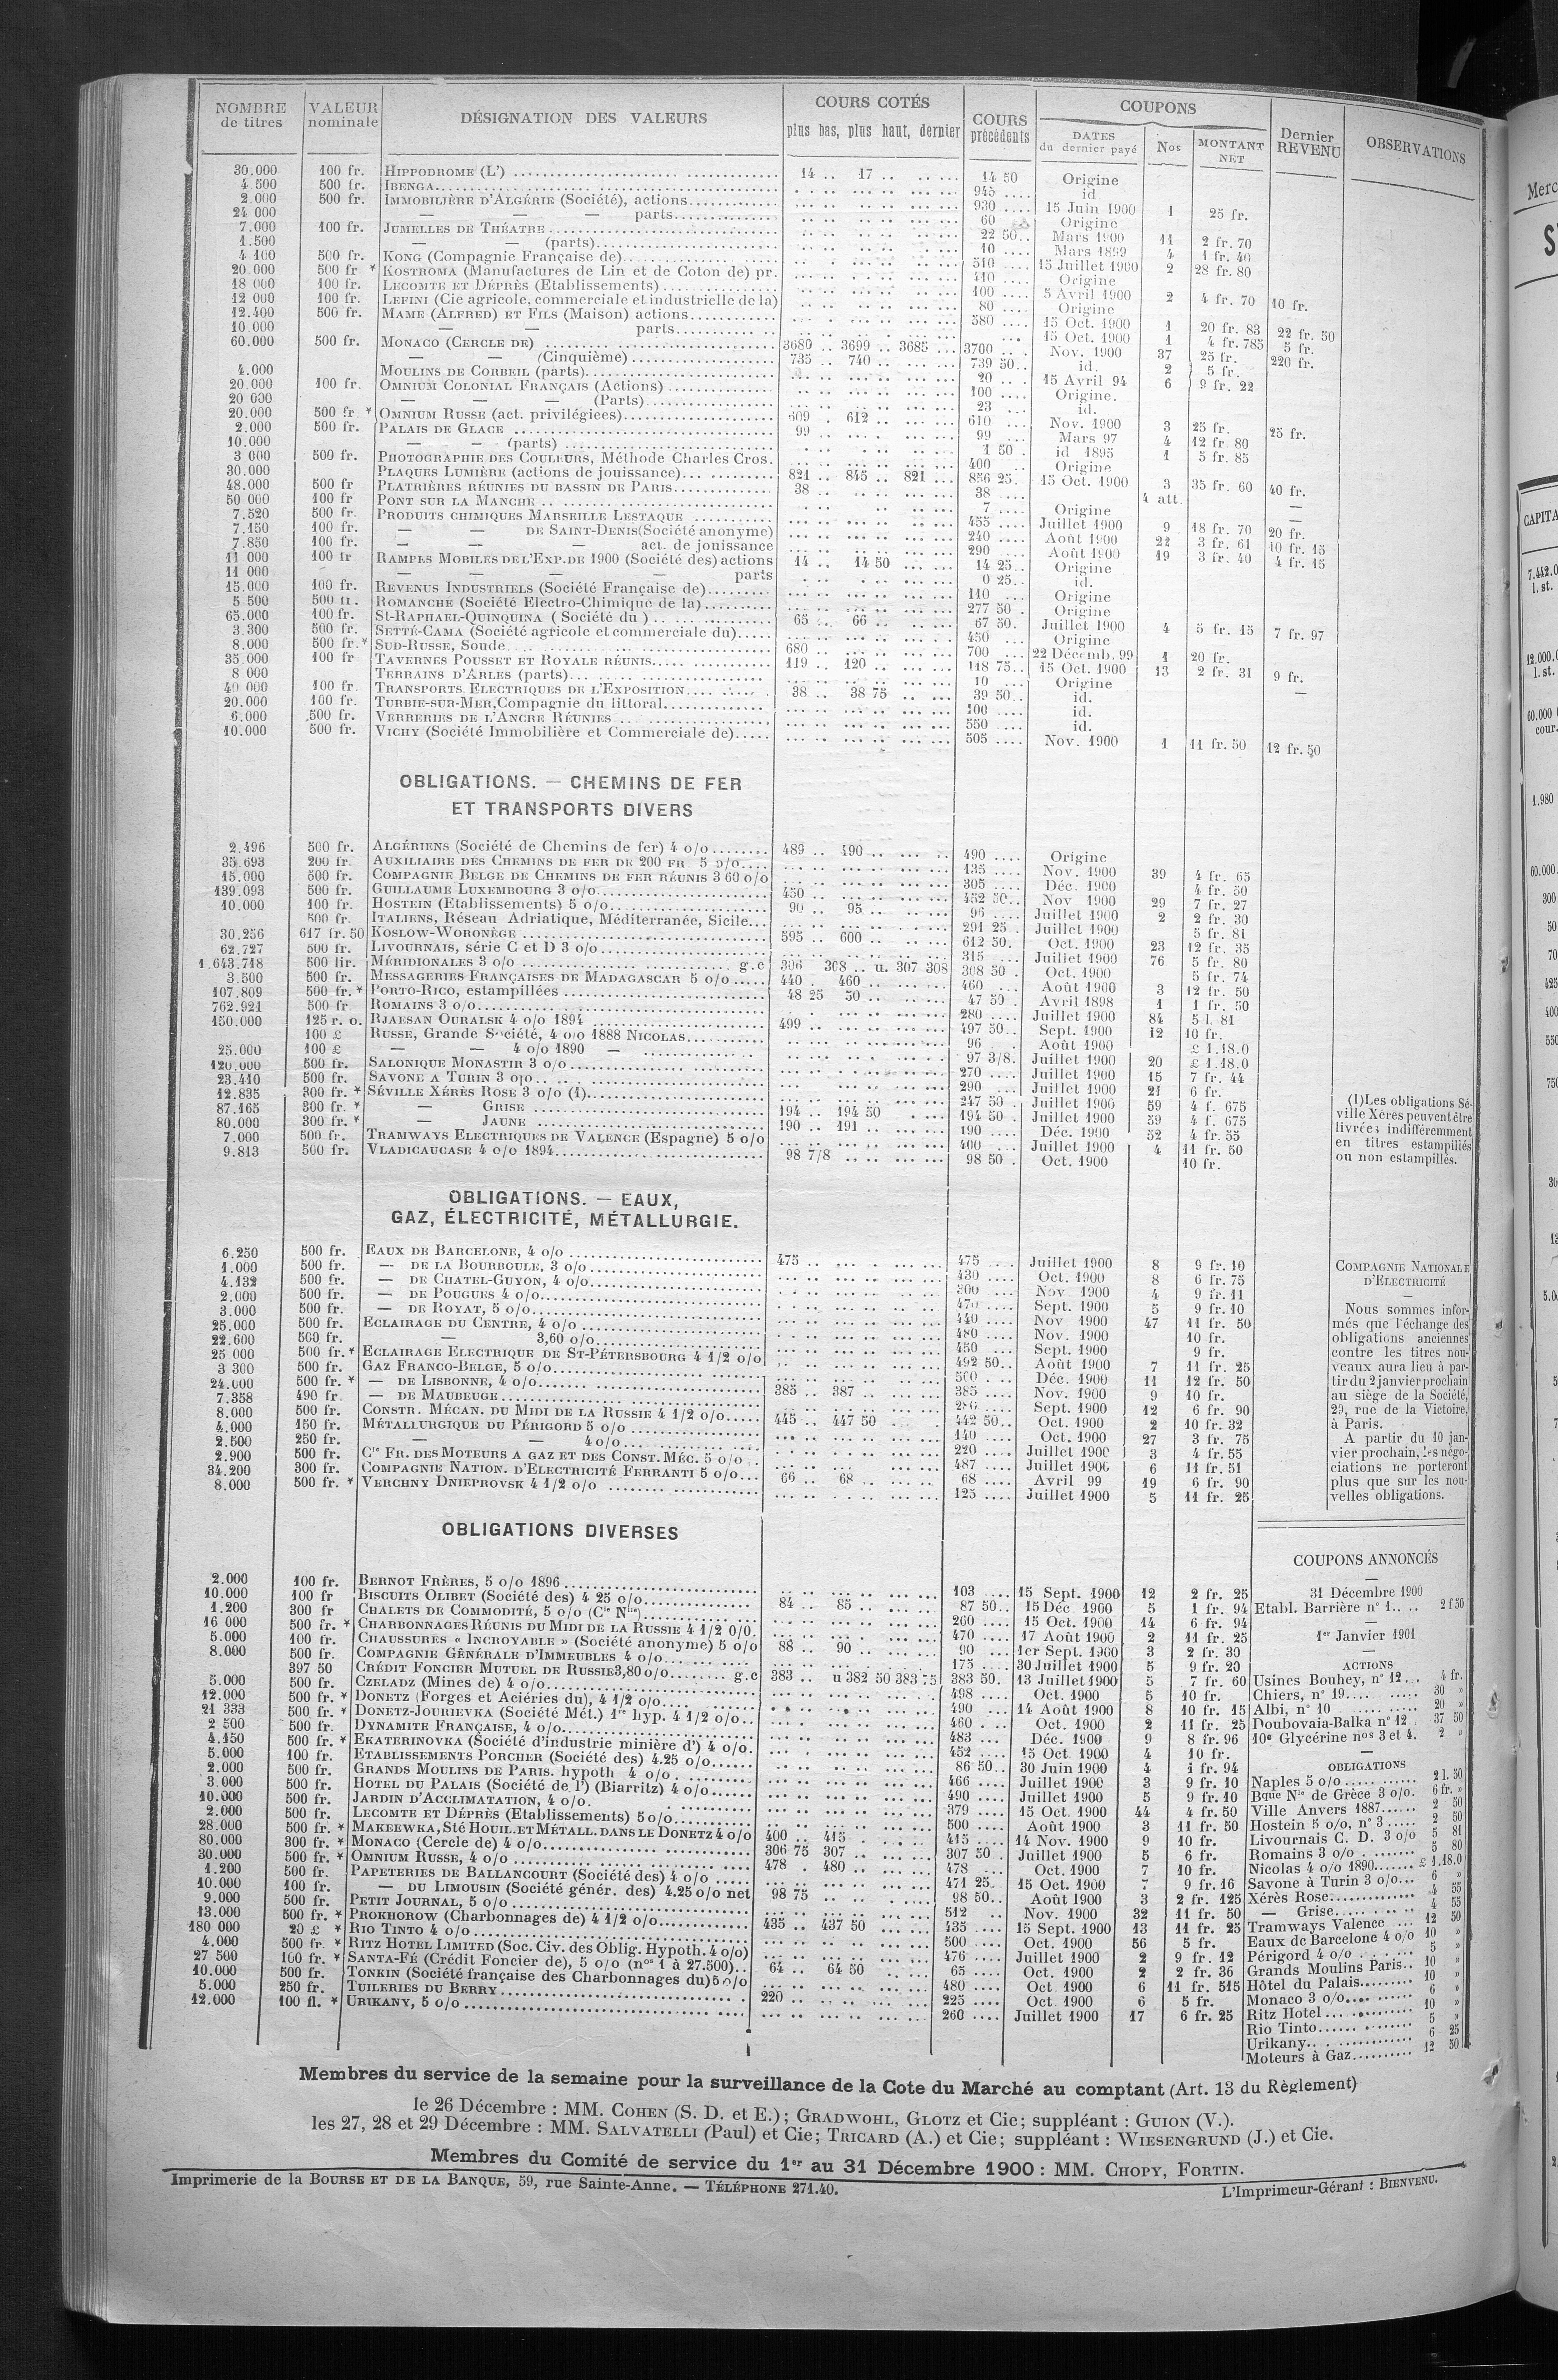 NOMBRE de titres | VALEUR nominale | DÉSIGNATION DES VALEURS | COURS COTÉS plus bas, plus haut, dernier | COURS précédents | COUPONS DATES du dernier payé | Nos | MONTANT NET | Dernier REVENU | OBSERVATIONS
30.000 100 fr. HIPPODROME (L') 14 .. 17 .. 14 50 Origine
4.500 500 fr. IBENGA 945 id.
2.000 500 fr. IMMOBILIÈRE D'ALGÉRIE (Société), actions 930 15 Juin 1900 1 25 fr.
24 000 — — — parts 60 Origine
7.000 100 fr. JUMELLES DE THÉATRE 22 50 Mars 1900 11 2 fr. 70
1.500 — — (parts) 10 Mars 1899 4 1 fr. 40
4 100 500 fr. KONG (Compagnie Française de) 510 15 Juillet 1900 2 28 fr. 80
20.000 500 fr * KOSTROMA (Manufactures de Lin et de Coton de) pr. 110 Origine
18 000 100 fr. LECOMTE ET DÉPRÈS (Etablissements) 100 5 Avril 1900 2 4 fr. 70 10 fr.
12 000 100 fr. LEFINI (Cie agricole, commerciale et industrielle de la) 80 Origine
12.400 500 fr. MAME (ALFRED) ET FILS (Maison) actions 580 15 Oct. 1900 1 20 fr. 83 22 fr. 50
10.000 — — parts 15 Oct. 1900 1 4 fr. 785 5 fr.
60.000 500 fr. MONACO (CERCLE DE) 3680 .. 3699 .. 3685 3700 Nov. 1900 37 25 fr. 220 fr.
— — (Cinquième) 735 .. 740 .. 739 50 id. 2 5 fr.
4.000 MOULINS DE CORBEIL (parts) 20 15 Avril 94 6 9 fr. 22
20.000 100 fr. OMNIUM COLONIAL FRANÇAIS (Actions) 100 Origine.
20 000 — — — (Parts) 23 id.
20.000 500 fr * OMNIUM RUSSE (act. privilégiees) 609 . 612 .. 610 Nov. 1900 3 25 fr. 25 fr.
2.000 500 fr. PALAIS DE GLACE 99 .. 99 Mars 97 4 12 fr. 80
10.000 — — (parts) 1 50 id 1895 1 5 fr. 85
3 000 500 fr. PHOTOGRAPHIE DES COULEURS, Méthode Charles Cros. 400 Origine
30.000 PLAQUES LUMIÈRE (actions de jouissance) 821 .. 845 .. 821 856 25 15 Oct. 1900 3 35 fr. 60 40 fr.
48.000 500 fr PLATRIÈRES RÉUNIES DU BASSIN DE PARIS 38 .. 38 4 att. —
50 000 100 fr PONT SUR LA MANCHE 7 Origine —
7.520 500 fr. PRODUITS CHIMIQUES MARSEILLE LESTAQUE 455 Juillet 1900 9 18 fr. 70 20 fr.
7.150 100 fr. — — DE SAINT-DENIS (Société anonyme) 240 Août 1900 22 3 fr. 61 10 fr. 15
7.850 100 fr. — — — act. de jouissance 290 Août 1900 19 3 fr. 40 4 fr. 15
11 000 100 fr RAMPES MOBILES DE L'EXP. DE 1900 (Société des) actions 14 .. 14 50 14 25 Origine
11 000 — — — — parts 0 25 id.
15.000 100 fr. REVENUS INDUSTRIELS (Société Française de) 110 Origine
5 500 500 fr. ROMANCHE (Société Electro-Chimique de la) 277 50 Origine
65.000 100 fr. St-RAPHAEL-QUINQUINA (Société du) 65 .. 66 .. 67 50 Juillet 1900 4 5 fr. 15 7 fr. 97
3.300 500 fr. SETTÉ-CAMA (Société agricole et commerciale du) 450 Origine
8.000 500 fr. * SUD-RUSSE, Soude 680 .. 700 22 Décemb. 99 1 20 fr.
35 000 100 fr TAVERNES POUSSET ET ROYALE RÉUNIS 119 .. 120 118 75 15 Oct. 1900 13 2 fr. 31 9 fr.
8 000 TERRAINS D'ARLES (parts) 10 Origine
40 000 100 fr. TRANSPORTS ELECTRIQUES DE L'EXPOSITION 38 .. 38 75 39 50 id. —
20.000 100 fr. TURBIE-SUR-MER, Compagnie du littoral 100 id.
6.000 500 fr. VERRERIES DE L'ANCRE RÉUNIES 550 id.
10.000 500 fr. VICHY (Société Immobilière et Commerciale de) 505 Nov. 1900 1 11 fr. 50 12 fr. 50
OBLIGATIONS. — CHEMINS DE FER
ET TRANSPORTS DIVERS
2.496 500 fr. ALGÉRIENS (Société de Chemins de fer) 4 o/o 489 .. 490 .. 490 Origine
35.693 200 fr. AUXILIAIRE DES CHEMINS DE FER DE 200 FR 5 o/o 135 Nov. 1900 39 4 fr. 65
15.000 500 fr. COMPAGNIE BELGE DE CHEMINS DE FER RÉUNIS 3 60 o/o 305 Déc. 1900 4 fr. 50
139.093 500 fr. GUILLAUME LUXEMBOURG 3 o/o 450 .. 452 50 Nov 1900 29 7 fr. 27
10.000 100 fr. HOSTEIN (Etablissements) 5 o/o 90 .. 95 .. 96 Juillet 1900 2 2 fr. 30
500 fr. ITALIENS, Réseau Adriatique, Méditerranée, Sicile 291 25 Juillet 1900 5 fr. 81
30.256 617 fr. 50 KOSLOW-WORONÈGE 595 .. 600 .. 612 50 Oct. 1900 23 12 fr. 35
62.727 500 fr. LIVOURNAIS, série C et D 3 o/o 315 Juillet 1900 76 5 fr. 80
1.643.718 500 lir. MÉRIDIONALES 3 o/o g.c 306 308 .. u. 307 308 308 50 Oct. 1900 5 fr. 74
3.500 500 fr. MESSAGERIES FRANÇAISES DE MADAGASCAR 5 o/o 440 . 460 .. 460 Août 1900 3 12 fr. 50
107.809 500 fr. * PORTO-RICO, estampillées 48 25 50 .. 47 50 Avril 1898 1 1 fr. 50
762.921 500 fr ROMAINS 3 o/o 280 Juillet 1900 84 5 l. 81
150.000 125 r. o. RJAESAN OURALSK 4 o/o 1894 499 .. 497 50 Sept. 1900 12 10 fr.
100 £ RUSSE, Grande Société, 4 o/o 1888 NICOLAS 96 Août 1900 £ 1.18.0
25.000 100 £ — — 4 o/o 1890 — 97 3/8. Juillet 1900 20 £ 1.18.0
120.000 500 fr. SALONIQUE MONASTIR 3 o/o 270 Juillet 1900 15 7 fr. 44
23.410 500 fr. SAVONE A TURIN 3 o/o 290 Juillet 1900 21 6 fr.
12.835 300 fr. * SÉVILLE XÉRÈS ROSE 3 o/o (1) 247 50 Juillet 1900 59 4 f. 675
87.165 300 fr. * — GRISE 194 .. 194 50 194 50 Juillet 1900 59 4 f. 675
80.000 300 fr. * — JAUNE 190 .. 191 .. 190 Déc. 1900 52 4 fr. 55
7.000 500 fr. TRAMWAYS ELECTRIQUES DE VALENCE (Espagne) 5 o/o 400 Juillet 1900 4 11 fr. 50
9.813 500 fr. VLADICAUCASE 4 o/o 1894 98 7/8 98 50 Oct. 1900 10 fr.
(1) Les obligations Sé-
ville Xérès peuvent être
livrées indifféremment
en titres estampillés
ou non estampillés.
OBLIGATIONS. — EAUX,
GAZ, ÉLECTRICITÉ, MÉTALLURGIE.
6.250 500 fr. EAUX DE BARCELONE, 4 o/o 475 .. 475 Juillet 1900 8 9 fr. 10
1.000 500 fr. — DE LA BOURBOULE, 3 o/o 430 Oct. 1900 8 6 fr. 75
4.132 500 fr. — DE CHATEL-GUYON, 4 o/o 300 Nov 1900 4 9 fr. 11
2.000 500 fr. — DE POUGUES 4 o/o 470 Sept. 1900 5 9 fr. 10
3.000 500 fr. — DE ROYAT, 5 o/o 440 Nov 1900 47 11 fr. 50
25.000 500 fr. ECLAIRAGE DU CENTRE, 4 o/o 480 Nov. 1900 10 fr.
22.600 500 fr. — 3,60 o/o 450 Sept. 1900 9 fr.
25 000 500 fr. * ECLAIRAGE ELECTRIQUE DE ST-PÉTERSBOURG 4 1/2 o/o 492 50 Août 1900 7 11 fr. 25
3 300 500 fr. GAZ FRANCO-BELGE, 5 o/o 500 Déc. 1900 11 12 fr. 50
24.000 500 fr. * — DE LISBONNE, 4 o/o 385 .. 387 .. 385 Nov. 1900 9 10 fr.
7.358 490 fr. — DE MAUBEUGE Sept. 1900 12 6 fr. 90
8.000 500 fr. CONSTR. MÉCAN. DU MIDI DE LA RUSSIE 4 1/2 o/o 445 .. 447 50 442 50 Oct. 1900 2 10 fr. 32
4.000 150 fr. MÉTALLURGIQUE DU PÉRIGORD 5 o/o 140 Oct. 1900 27 3 fr. 75
2.500 250 fr. — — 4 o/o 220 Juillet 1900 3 4 fr. 55
2.900 500 fr. Cie FR. DES MOTEURS A GAZ ET DES CONST. MÉC. 5 o/o 487 Juillet 1900 6 11 fr. 51
34.200 300 fr. COMPAGNIE NATION. D'ELECTRICITÉ FERRANTI 5 o/o 66 .. 68 .. 68 Avril 99 19 6 fr. 90
8.000 500 fr. * VERCHNY DNIEPROVSK 4 1/2 o/o 125 Juillet 1900 5 11 fr. 25
COMPAGNIE NATIONALE
D'ELECTRICITÉ
—
Nous sommes infor-
més que l'échange des
obligations anciennes
contre les titres nou-
veaux aura lieu à par-
tir du 2 janvier prochain
au siège de la Société,
29, rue de la Victoire,
à Paris.
A partir du 10 jan-
vier prochain, les négo-
ciations ne porteront
plus que sur les nou-
velles obligations.
OBLIGATIONS DIVERSES
2.000 100 fr. BERNOT FRÈRES, 5 o/o 1896 103 15 Sept. 1900 12 2 fr. 25
10.000 100 fr BISCUITS OLIBET (Société des) 4 25 o/o 84 .. 85 .. 87 50 15 Déc 1900 5 1 fr. 94
1.200 300 fr CHALETS DE COMMODITÉ, 5 o/o (Cie Nlle) 260 15 Oct. 1900 14 6 fr. 94
16 000 500 fr. * CHARBONNAGES RÉUNIS DU MIDI DE LA RUSSIE 4 1/2 0/0. 470 17 Août 1900 2 11 fr. 25
5.000 100 fr. CHAUSSURES « INCROYABLE » (Société anonyme) 5 o/o 88 .. 90 .. 90 1er Sept. 1900 3 2 fr. 30
8.000 500 fr. COMPAGNIE GÉNÉRALE D'IMMEUBLES 4 o/o 175 30 Juillet 1900 5 9 fr. 20
397 50 CRÉDIT FONCIER MUTUEL DE RUSSIE 3,80 o/o g.c 383 .. u 382 50 383 75 383 50 13 Juillet 1900 5 7 fr. 60
5.000 500 fr. CZELADZ (Mines de) 4 o/o 498 Oct. 1900 5 10 fr.
12.000 500 fr. * DONETZ (Forges et Aciéries du), 4 1/2 o/o 490 14 Août 1900 8 10 fr. 15
21 333 500 fr. * DONETZ-JOURIEVKA (Société Mét.) 1re hyp. 4 1/2 o/o 460 Oct. 1900 2 11 fr. 25
2 500 500 fr. DYNAMITE FRANÇAISE, 4 o/o 483 Déc. 1900 9 8 fr. 96
4.150 500 fr. * EKATERINOVKA (Société d'industrie minière d') 4 o/o. 452 15 Oct. 1900 4 10 fr.
5.000 100 fr. ETABLISSEMENTS PORCHER (Société des) 4.25 o/o 86 50 30 Juin 1900 4 1 fr. 94
2.000 500 fr. GRANDS MOULINS DE PARIS. hypoth 4 o/o 466 Juillet 1900 3 9 fr. 10
3.000 500 fr. HOTEL DU PALAIS (Société de l') (Biarritz) 4 o/o 490 Juillet 1900 5 9 fr. 10
10.000 500 fr. JARDIN D'ACCLIMATATION, 4 o/o. 379 15 Oct. 1900 44 4 fr. 50
2.000 500 fr. LECOMTE ET DÉPRÈS (Etablissements) 5 o/o 500 Août 1900 3 11 fr. 50
28.000 500 fr. * MAKEEWKA, Sté HOUIL. ET MÉTALL. DANS LE DONETZ 4 o/o 400 .. 415 415 14 Nov. 1900 9 10 fr.
80.000 300 fr. * MONACO (Cercle de) 4 o/o 306 75 307 .. 307 50 Juillet 1900 5 6 fr.
30.000 500 fr. * OMNIUM RUSSE, 4 o/o 478 . 480 .. 478 Oct. 1900 7 10 fr.
1.200 500 fr. PAPETERIES DE BALLANCOURT (Société des) 4 o/o 471 25 15 Oct. 1900 7 9 fr. 16
10.000 100 fr. — DU LIMOUSIN (Société génér. des) 4.25 o/o net 98 75 98 50 Août 1900 3 2 fr. 125
9.000 500 fr. PETIT JOURNAL, 5 o/o 512 Nov. 1900 32 11 fr. 50
13.000 500 fr. * PROKHOROW (Charbonnages de) 4 1/2 o/o 435 .. 437 50 435 15 Sept. 1900 13 11 fr. 25
180 000 20 £ * RIO TINTO 4 o/o 500 Oct. 1900 56 5 fr.
4.000 500 fr. * RITZ HOTEL LIMITED (Soc. Civ. des Oblig. Hypoth. 4 o/o) 476 Juillet 1900 2 9 fr. 12
27 500 100 fr. * SANTA-FÉ (Crédit Foncier de), 5 o/o (nos 1 à 27.500) 64 .. 64 50 65 Oct. 1900 2 2 fr. 36
10.000 500 fr. TONKIN (Société française des Charbonnages du) 5 o/o 480 Oct 1900 6 11 fr. 515
5.000 250 fr. TUILERIES DU BERRY 220 .. 225 Oct. 1900 6 5 fr.
12.000 100 fl. * URIKANY, 5 o/o 260 Juillet 1900 17 6 fr. 25
COUPONS ANNONCÉS
—
31 Décembre 1900
Etabl. Barrière n° 1 2 f 50
—
1er Janvier 1901
—
ACTIONS
Usines Bouhey, n° 12 4 fr.
Chiers, n° 19 30 »
Albi, n° 10 20 »
Doubovaia-Balka n° 12 37 50
10e Glycérine nos 3 et 4. 2 »
—
OBLIGATIONS
Naples 5 o/o 2 l. 50
Bque Nle de Grèce 3 o/o. 6 fr. »
Ville Anvers 1887 2 50
Hostein 5 o/o, n° 3 2 50
Livournais C. D. 3 o/o 5 81
Romains 3 o/o 5 80
Nicolas 4 o/o 1890 £ 1.18.0
Savone à Turin 3 o/o 6 »
Xérès Rose 4 55
— Grise 4 55
Tramways Valence 12 50
Eaux de Barcelone 4 o/o 10 »
Périgord 4 o/o 5 »
Grands Moulins Paris 10 »
Hôtel du Palais 10 »
Monaco 3 o/o 6 »
Ritz Hotel 10 »
Rio Tinto 5 »
Urikany 6 25
Moteurs à Gaz 12 50
Membres du service de la semaine pour la surveillance de la Cote du Marché au comptant (Art. 13 du Règlement)
le 26 Décembre : MM. COHEN (S. D. et E.); GRADWOHL, GLOTZ et Cie; suppléant : GUION (V.).
les 27, 28 et 29 Décembre : MM. SALVATELLI (Paul) et Cie; TRICARD (A.) et Cie; suppléant : WIESENGRUND (J.) et Cie.
Membres du Comité de service du 1er au 31 Décembre 1900 : MM. CHOPY, FORTIN.
Imprimerie de la BOURSE ET DE LA BANQUE, 59, rue Sainte-Anne. — TÉLÉPHONE 271.40.
L'Imprimeur-Gérant : BIENVENU.